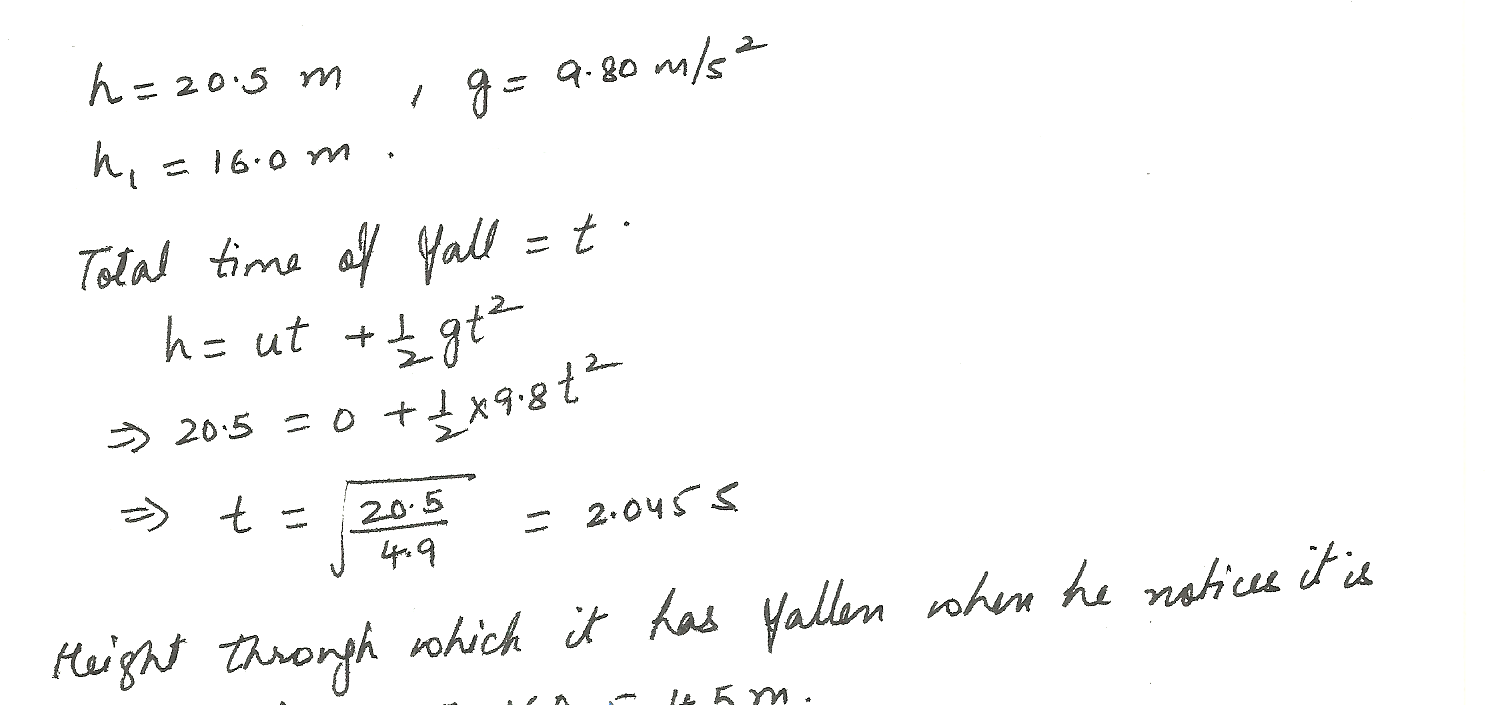 h = 20.5 m , g = 9.80 m/s²
h₁ = 16.0 m .
Total time of fall = t .
h = ut + 1/2 gt²
⇒ 20.5 = 0 + 1/2 × 9.8 t²
⇒ t = √(20.5/4.9) = 2.045 s
Height through which it has fallen when he notices it is
= 4.5 m .